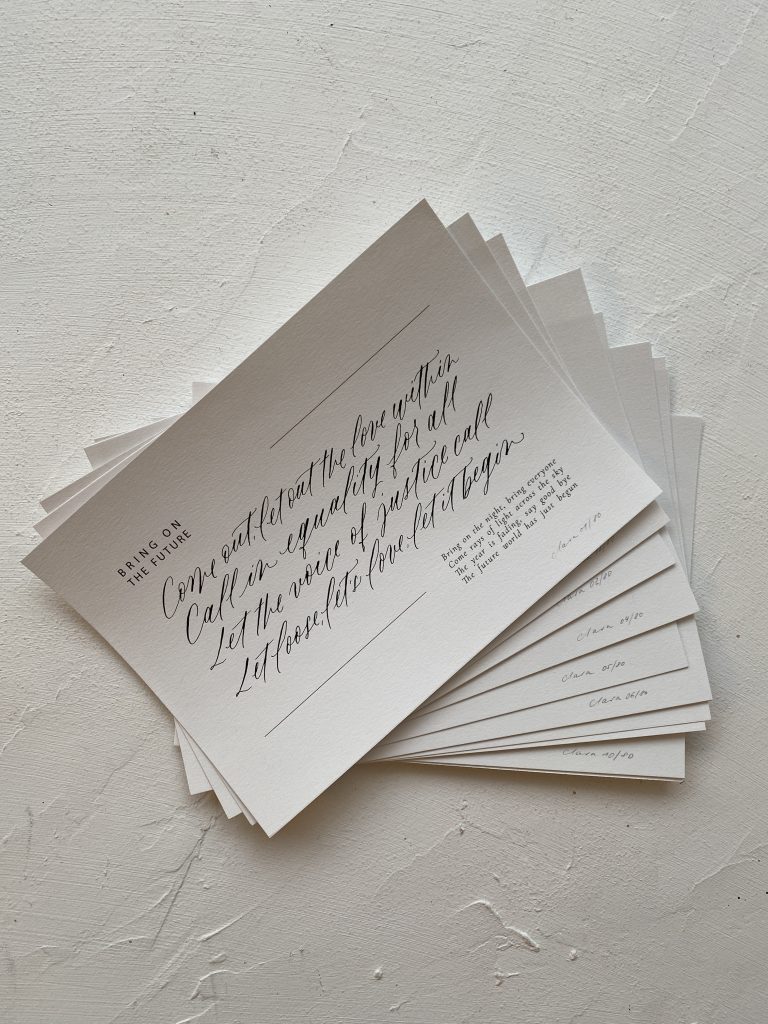 BRING ON
THE FUTURE
Come out, let out the love within
Call in equality for all
Let the voice of justice call
Let loose, let's love, let it begin
Bring on the night, bring everyone
Come rays of light across the sky
The year is fading, say good bye
The future world has just begun
Clara 01/80
Clara 02/80
Clara 04/80
Clara 05/80
Clara 06/80
Clara 10/80